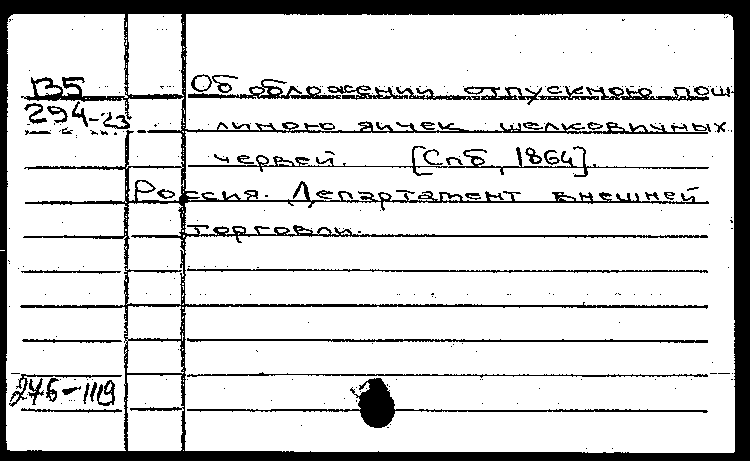 135
294-23
Об обложении отпускною пош-
линою яичек шелковичных
червей. [Спб, 1864].
Россия. Департамент внешней
торговли.
276-1119